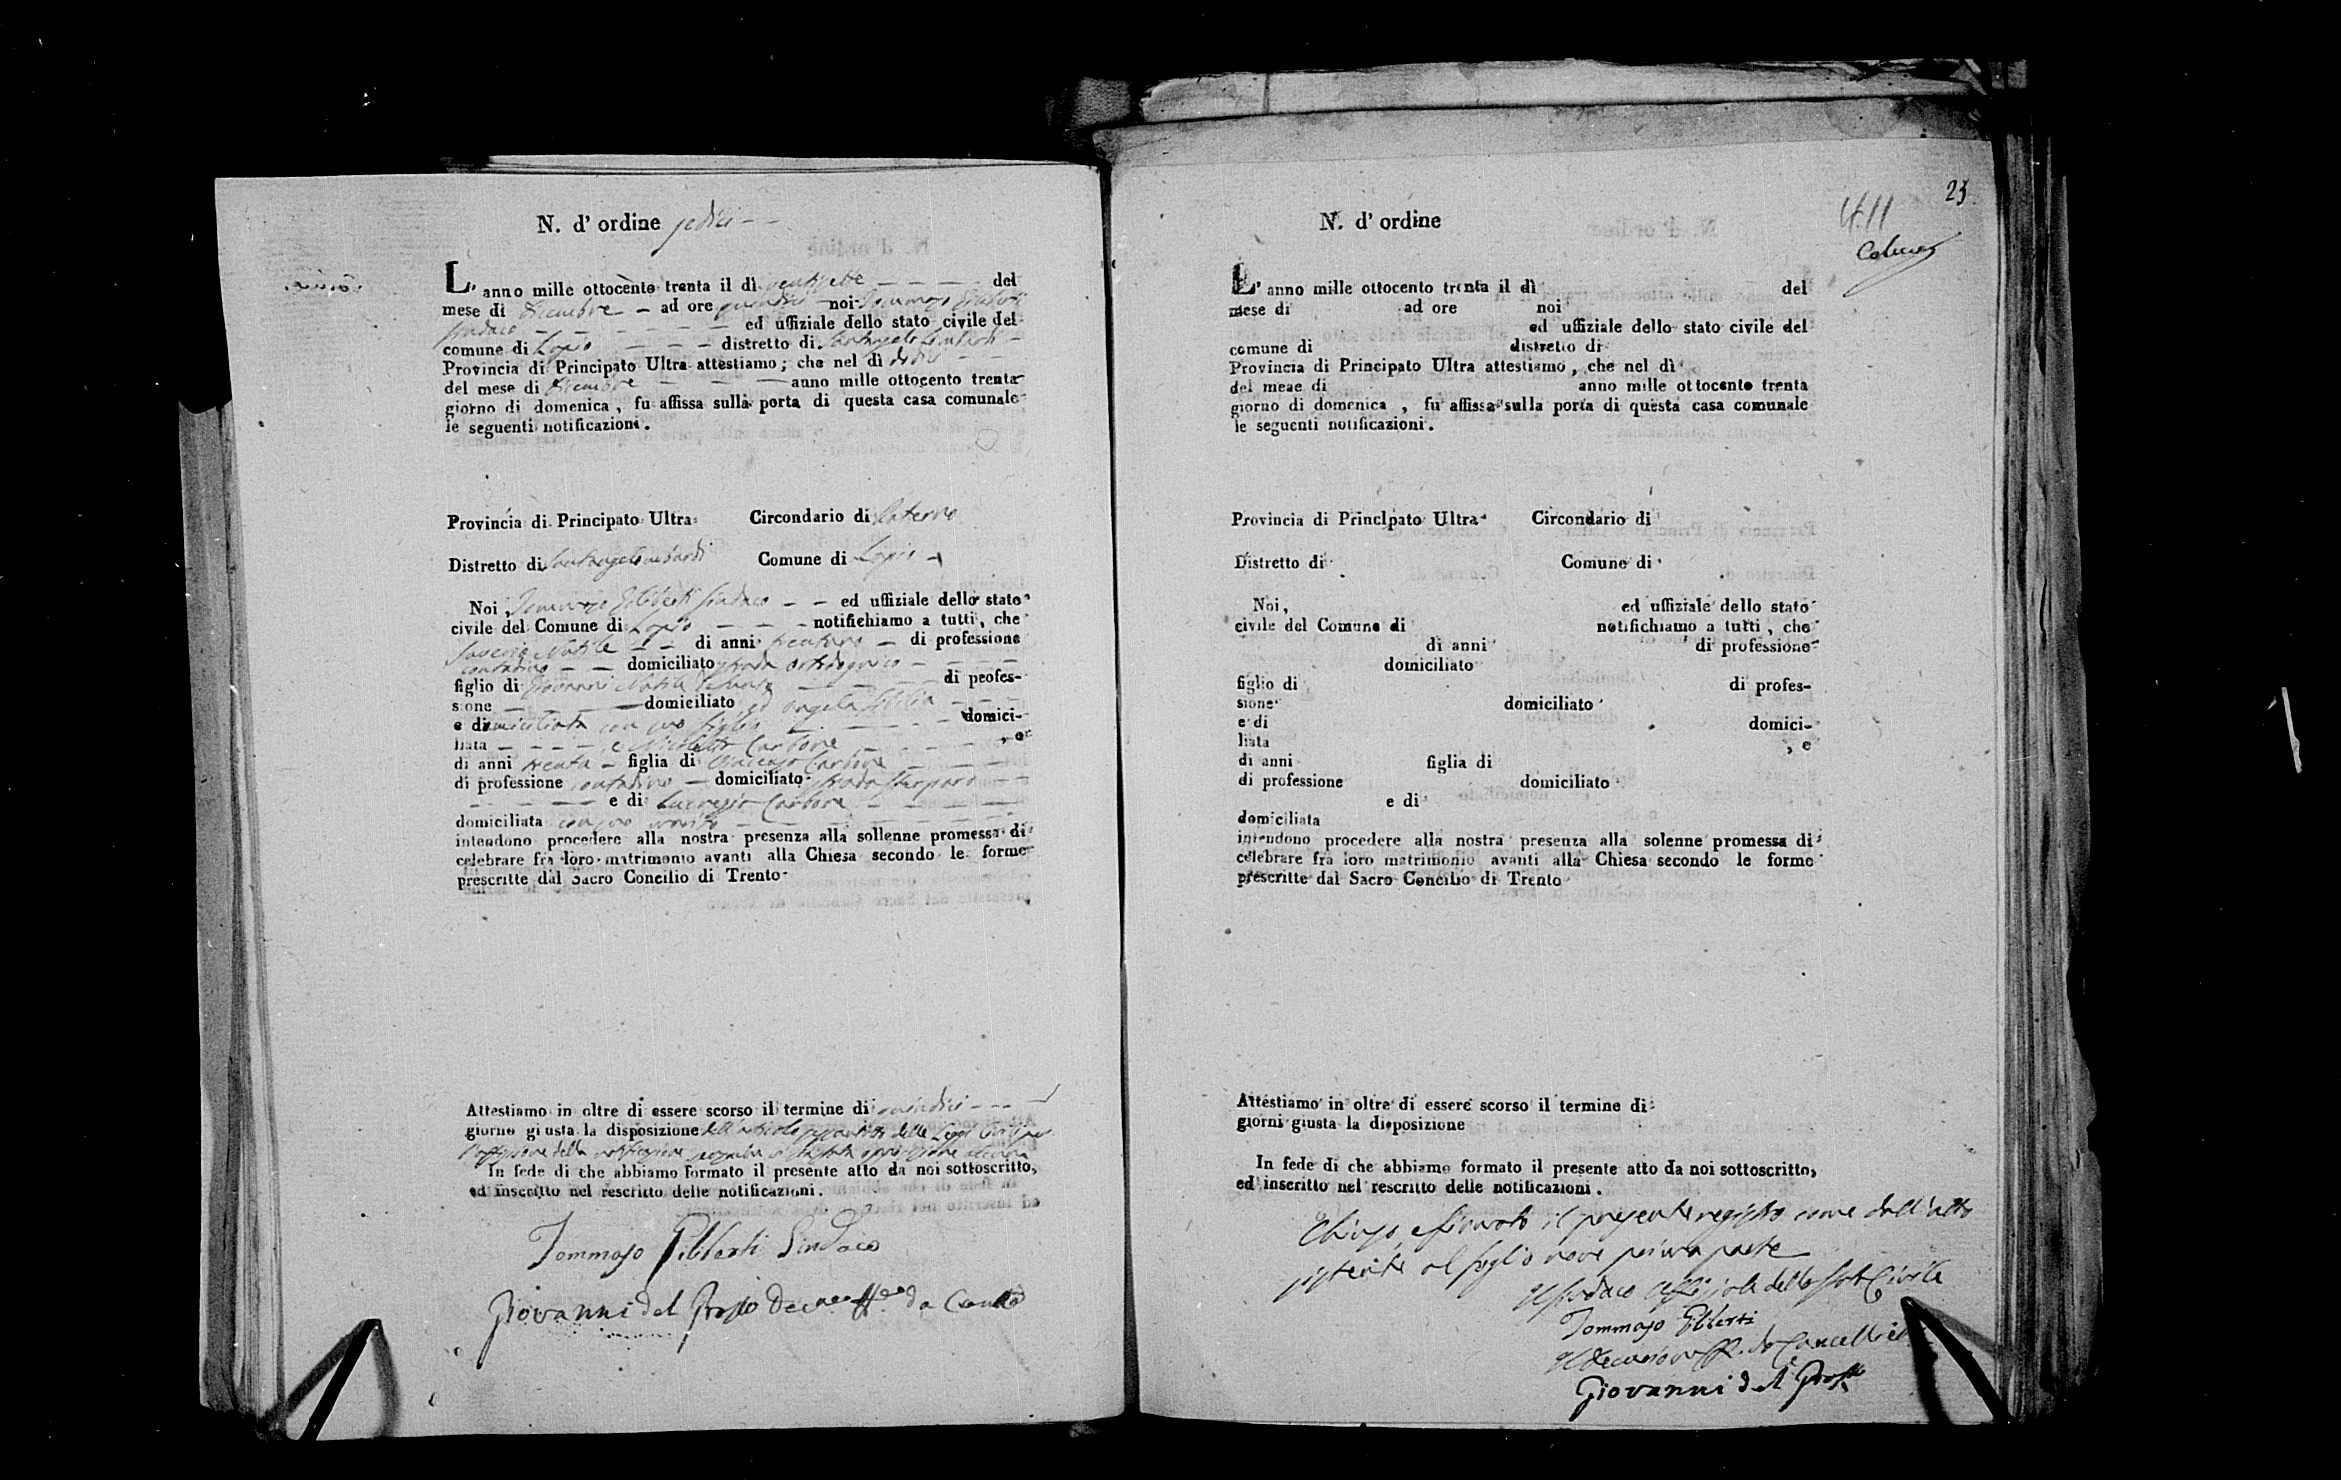 N. d' ordine sedici
L' anno mille ottocento trenta il dì ventisette del
mese di Decembre ad ore quindici noi Tommaso Giliberti
Sindaco ed uffiziale dello stato civile del
comune di Lapio distretto di Santangelo Lombardi
Provincia di Principato Ultra attestiamo; che nel dì dodici
del mese di Decembre anno mille ottocento trenta
giorno di domenica, fu affissa sulla porta di questa casa comunale
le seguenti notificazioni.
Provincia di Principato Ultra Circondario di Paterno
Distretto di Santangelo Lombardi Comune di Lapio
Noi, Tommaso Giliberti Sindaco ed uffiziale dello stato
civile del Comune di Lapio notifichiamo a tutti, che
Natile di anni di professione
contadino domiciliato strada
figlio di Giovanni Natile di peofes-
sione domiciliato ed Angela
e di domiciliata con suo figlio domici-
liata e Nicoletta Carbone , e
di anni trenta figlia di Carbone
di professione contadino domiciliato strada
e di Lucrezia Carbone
domiciliata con suo marito
intendono procedere alla nostra presenza alla sollenne promessa di
celebrare fra loro matrimonio avanti alla Chiesa secondo le forme
prescritte dal Sacro Concilio di Trento
Attestiamo in oltre di essere scorso il termine di quindici
giorno giusta la disposizione dell'articolo delle Leggi Civili per
l'affissione della notificazione
In fede di che abbiamo formato il presente atto da noi sottoscritto,
ed inscritto nel rescritto delle notificazioni.
Tommaso Giliberti Sindaco
Giovanni del Grosso da
23
N. d' ordine
L' anno mille ottocento trenta il dì del
mese di ad ore noi
ed uffiziale dello stato civile del
comune di distretto di
Provincia di Principato Ultra attestiamo, che nel dì
del mese di anno mille ottocento trenta
giorno di domenica , fu affissa sulla porta di questa casa comunale
le seguenti notificazioni.
Provincia di Principato Ultra Circondario di
Distretto di Comune di
Noi, ed uffiziale dello stato
civile del Comune di notifichiamo a tutti, che
di anni di professione
domiciliato
figlio di di profes-
sione domiciliato
e di domici-
liata , e
di anni figlia di
di professione domiciliato
e di
domiciliata
intendono procedere alla nostra presenza alla solenne promessa di
celebrare fra loro matrimonio avanti alla Chiesa secondo le forme
prescritte dal Sacro Concilio di Trento
Attestiamo in oltre di essere scorso il termine di
giorni giusta la disposizione
In fede di che abbiamo formato il presente atto da noi sottoscritto,
ed inscritto nel rescritto delle notificazioni.
Chiuso, e firmato il presente registro come dall'atto
sistente al foglio nove prima parte
Il Sindaco Uffiziale dello Stato Civile
Tommaso Giliberti
Il decurione ff. da Cancelliere
Giovanni del Grosso